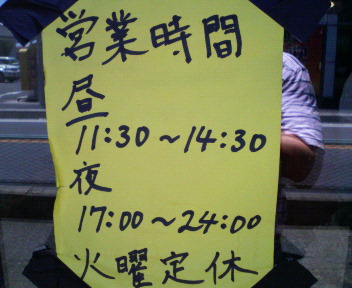 営業時間
昼
11:30～14:30
夜
17:00～24:00
火曜定休